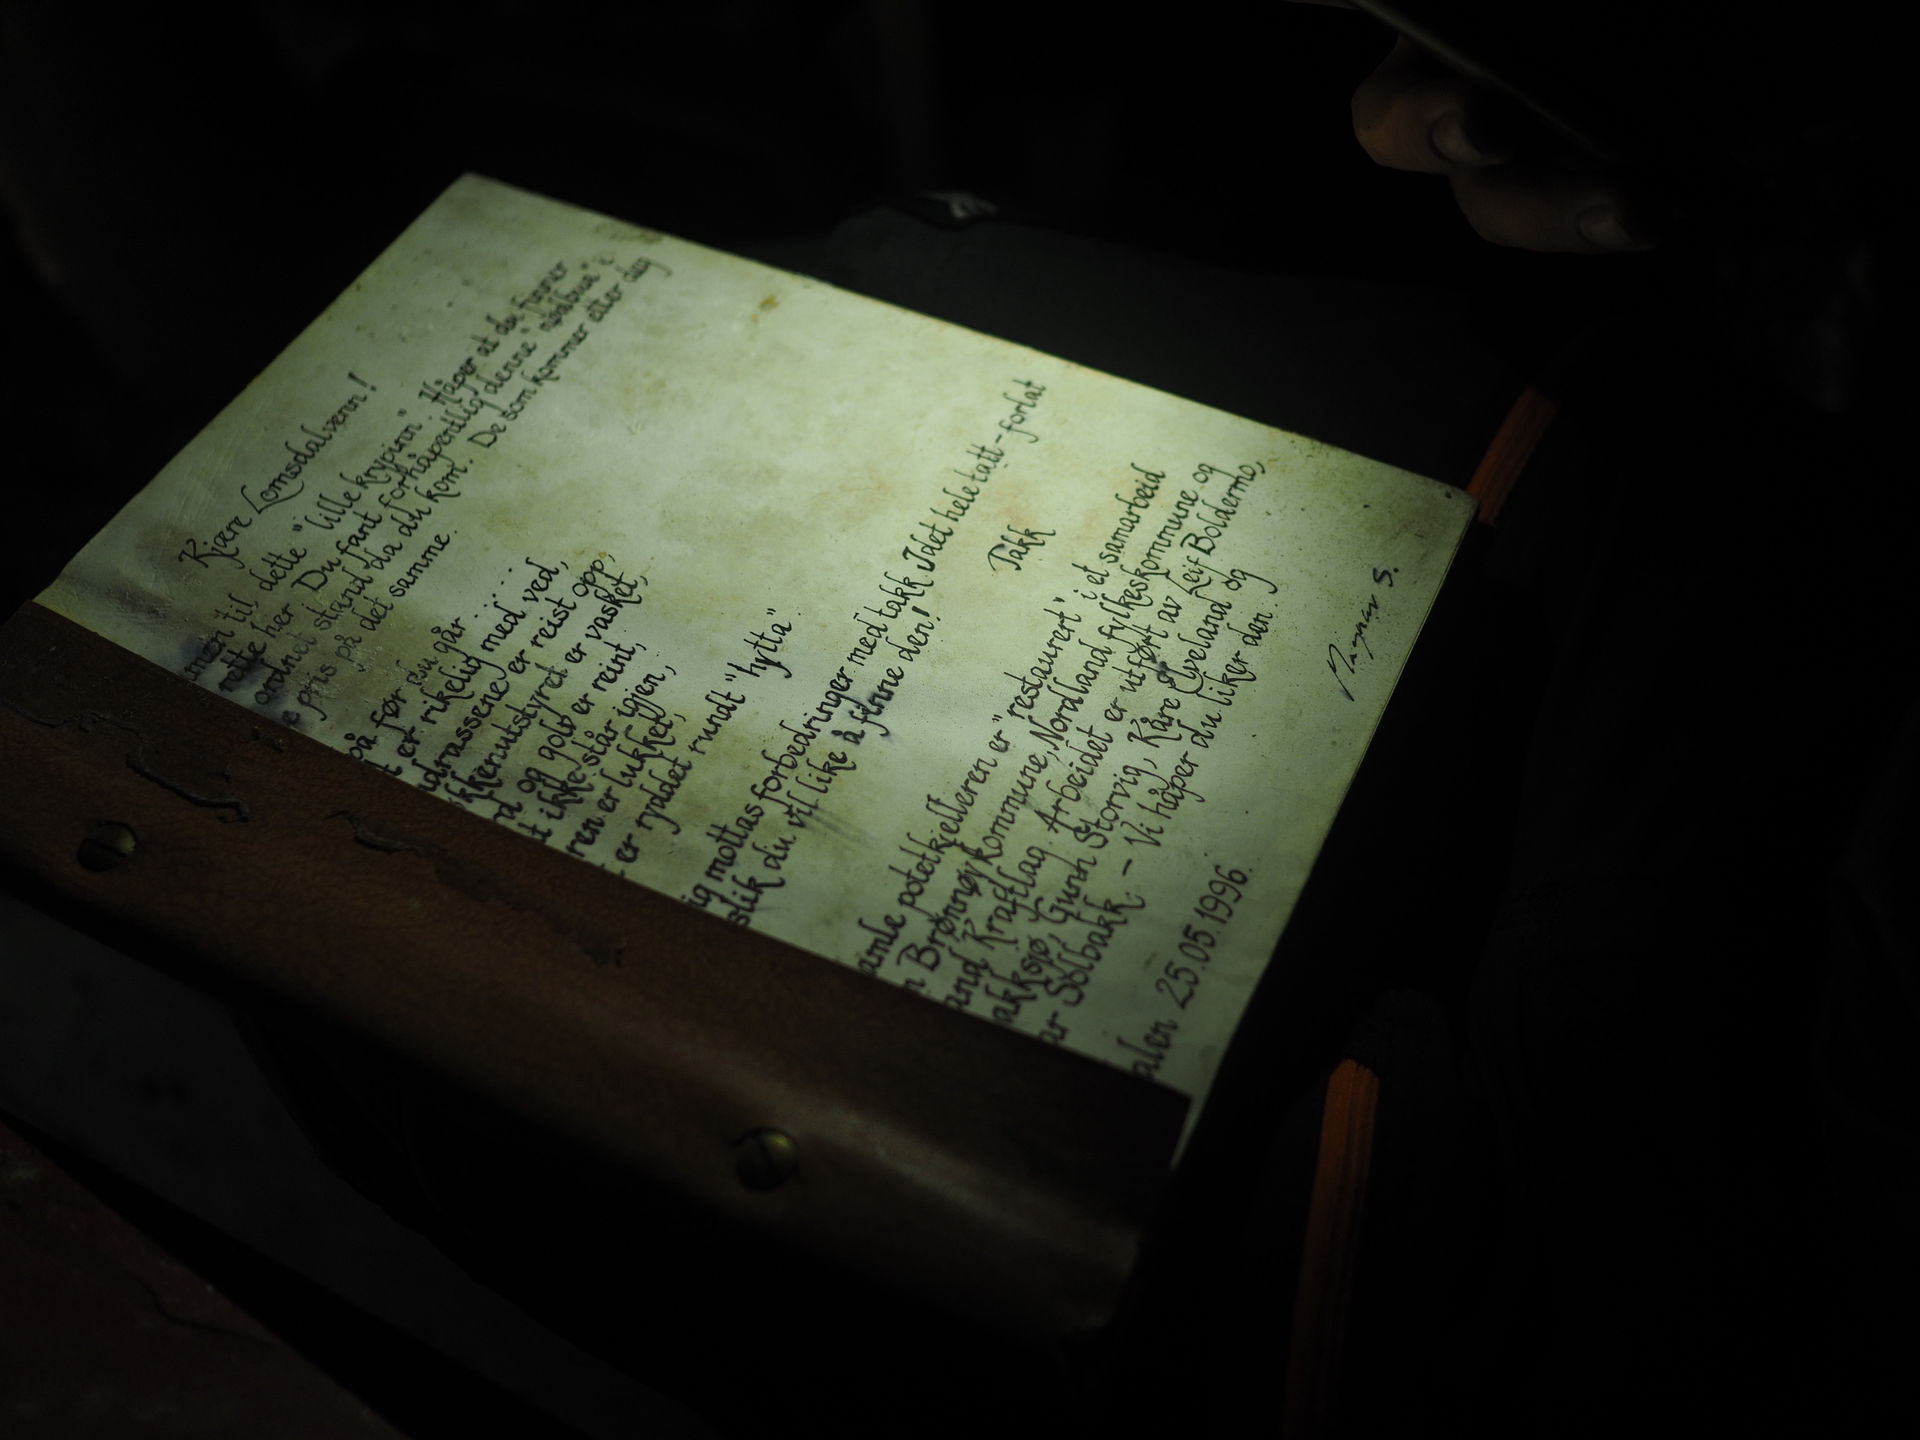 Kjære Lomsdalvenn!
men til dette "lille krypinn". Håper at du finner
rette her. Du fant forhåpentlig denne "nødbua" i
ordnet stand da du kom. De som kommer etter deg
pris på det samme.
på før du går ....:
er rikelig med ved,
madrassene er reist opp,
kkenutstyret er vasket,
og golv er reint,
ikke står igjen,
ren er lukket,
er ryddet rundt "hytta"
ig mottas forbedringer med takk. I det hele tatt - forlat
slik du vil like å finne den!
Takk
amle potetkjelleren er "restaurert" i et samarbeid
n Brønnøy kommune, Nordland fylkeskommune og
and Kraftlag. Arbeidet er utført av Leif Boldermo,
akksjø, Gunnh Storvig, Kåre Kveland og
ar Solbakk. - Vi håper du liker den.
alen 25.05.1996.
S.